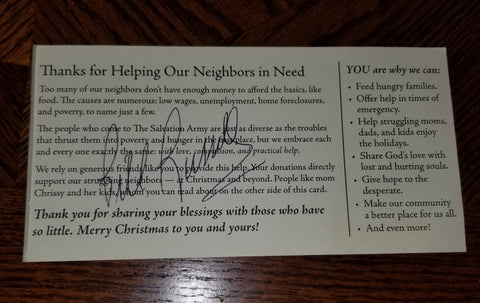 Thanks for Helping Our Neighbors in Need
Too many of our neighbors don't have enough money to afford the basics, like
food. The causes are numerous: low wages, unemployment, home foreclosures,
and poverty, to name just a few.
The people who come to The Salvation Army are just as diverse as the troubles
that thrust them into poverty and hunger in the place, but we embrace each
and every one exactly the same: with love, compassion, and practical help.
We rely on generous friends like you to provide this help. Your donations directly
support our struggling neighbors — at Christmas and beyond. People like mom
Chrissy and her kids, whom you can read about on the other side of this card.
Thank you for sharing your blessings with those who have
so little. Merry Christmas to you and yours!
YOU are why we can:
• Feed hungry families.
• Offer help in times of
emergency.
• Help struggling moms,
dads, and kids enjoy
the holidays.
• Share God's love with
lost and hurting souls.
• Give hope to the
desperate.
• Make our community
a better place for us all.
• And even more!